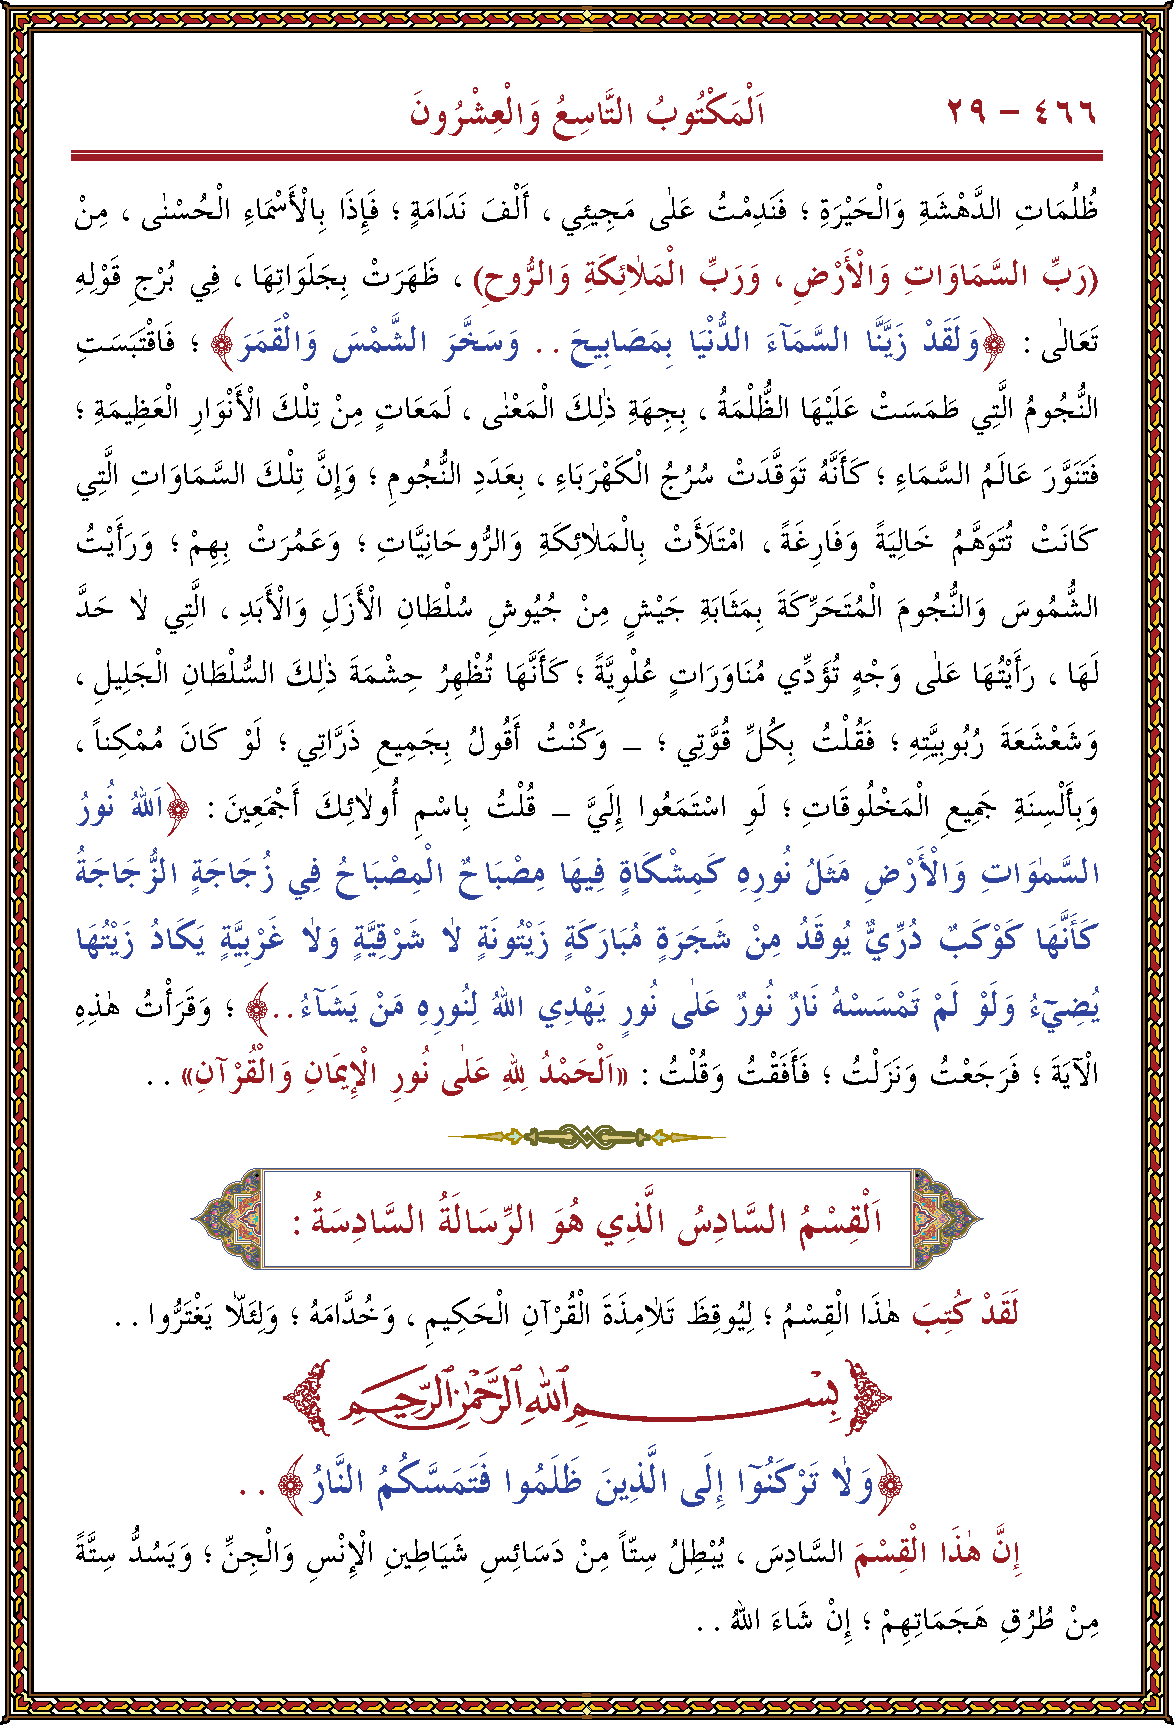 ٤٦٦ - ٢٩ اَلْمَكْتُوبُ التَّاسِعُ وَالْعِشْرُونَ
ظُلُمَاتِ الدَّهْشَةِ وَالْحَيْرَةِ ؛ فَنَدِمْتُ عَلٰى مَجِيئِي ، أَلْفَ نَدَامَةٍ ؛ فَإِذَا بِالْأَسْمَاءِ الْحُسْنٰى ، مِنْ
(رَبِّ السَّمَاوَاتِ وَالْأَرْضِ ، وَرَبِّ الْمَلٰائِكَةِ وَالرُّوحِ) ، ظَهَرَتْ بِجَلَوَاتِهَا ، فِي بُرْجِ قَوْلِهِ
تَعَالٰى : ﴿وَلَقَدْ زَيَّنَّا السَّمَآءَ الدُّنْيَا بِمَصَابِيحَ . . وَسَخَّرَ الشَّمْسَ وَالْقَمَرَ﴾ ؛ فَاقْتَبَسَتِ
النُّجُومُ الَّتِي طَمَسَتْ عَلَيْهَا الظُّلْمَةُ ، بِجِهَةِ ذٰلِكَ الْمَعْنٰى ، لَمَعَاتٍ مِنْ تِلْكَ الْأَنْوَارِ الْعَظِيمَةِ ؛
فَتَنَوَّرَ عَالَمُ السَّمَاءِ ؛ كَأَنَّهُ تَوَقَّدَتْ سُرُجُ الْكَهْرَبَاءِ ، بِعَدَدِ النُّجُومِ ؛ وَإِنَّ تِلْكَ السَّمَاوَاتِ الَّتِي
كَانَتْ تُتَوَهَّمُ خَالِيَةً وَفَارِغَةً ، امْتَلَأَتْ بِالْمَلٰائِكَةِ وَالرُّوحَانِيَّاتِ ؛ وَعَمُرَتْ بِهِمْ ؛ وَرَأَيْتُ
الشُّمُوسَ وَالنُّجُومَ الْمُتَحَرِّكَةَ بِمَثَابَةِ جَيْشٍ مِنْ جُيُوشِ سُلْطَانِ الْأَزَلِ وَالْأَبَدِ ، الَّتِي لٰا حَدَّ
لَهَا ، رَأَيْتُهَا عَلٰى وَجْهٍ تُؤَدِّي مُنَاوَرَاتٍ عُلْوِيَّةً ؛ كَأَنَّهَا تُظْهِرُ حِشْمَةَ ذٰلِكَ السُّلْطَانِ الْجَلِيلِ ،
وَشَعْشَعَةَ رُبُوبِيَّتِهِ ؛ فَقُلْتُ بِكُلِّ قُوَّتِي ؛ _ وَكُنْتُ أَقُولُ بِجَمِيعِ ذَرَّاتِي ؛ لَوْ كَانَ مُمْكِناً ،
وَبِأَلْسِنَةِ جَمِيعِ الْمَخْلُوقَاتِ ؛ لَوِ اسْتَمَعُوا إِلَيَّ _ قُلْتُ بِاسْمِ أُولٰائِكَ أَجْمَعِينَ : ﴿اَللّٰهُ نُورُ
السَّمٰوَاتِ وَالْأَرْضِ مَثَلُ نُورِهِ كَمِشْكَاةٍ فِيهَا مِصْبَاحٌ الْمِصْبَاحُ فِي زُجَاجَةٍ الزُّجَاجَةُ
كَأَنَّهَا كَوْكَبٌ دُرِّيٌّ يُوقَدُ مِنْ شَجَرَةٍ مُبَارَكَةٍ زَيْتُونَةٍ لٰا شَرْقِيَّةٍ وَلٰا غَرْبِيَّةٍ يَكَادُ زَيْتُهَا
يُضِيٓءُ وَلَوْ لَمْ تَمْسَسْهُ نَارٌ نُورٌ عَلٰى نُورٍ يَهْدِي اللّٰهُ لِنُورِهِ مَنْ يَشَآءُ..﴾ ؛ وَقَرَأْتُ هٰذِهِ
الْآيَةَ ؛ فَرَجَعْتُ وَنَزَلْتُ ؛ فَأَفَقْتُ وَقُلْتُ : «اَلْحَمْدُ لِلّٰهِ عَلٰى نُورِ الْإِيمَانِ وَالْقُرْآنِ» . .
اَلْقِسْمُ السَّادِسُ الَّذِي هُوَ الرِّسَالَةُ السَّادِسَةُ :
لَقَدْ كُتِبَ هٰذَا الْقِسْمُ ؛ لِيُوقِظَ تَلٰامِذَةَ الْقُرْآنِ الْحَكِيمِ ، وَخُدَّامَهُ ؛ وَلِئَلّٰا يَغْتَرُّوا . .
بِسْمِ اللّٰهِ الرَّحْمٰنِ الرَّحِيمِ
﴿وَلٰا تَرْكَنُوٓا إِلَى الَّذِينَ ظَلَمُوا فَتَمَسَّكُمُ النَّارُ﴾ . .
إِنَّ هٰذَا الْقِسْمَ السَّادِسَ ، يُبْطِلُ سِتّاً مِنْ دَسَائِسِ شَيَاطِينِ الْإِنْسِ وَالْجِنِّ ؛ وَيَسُدُّ سِتَّةً
مِنْ طُرُقِ هَجَمَاتِهِمْ ؛ إِنْ شَاءَ اللّٰهُ . .